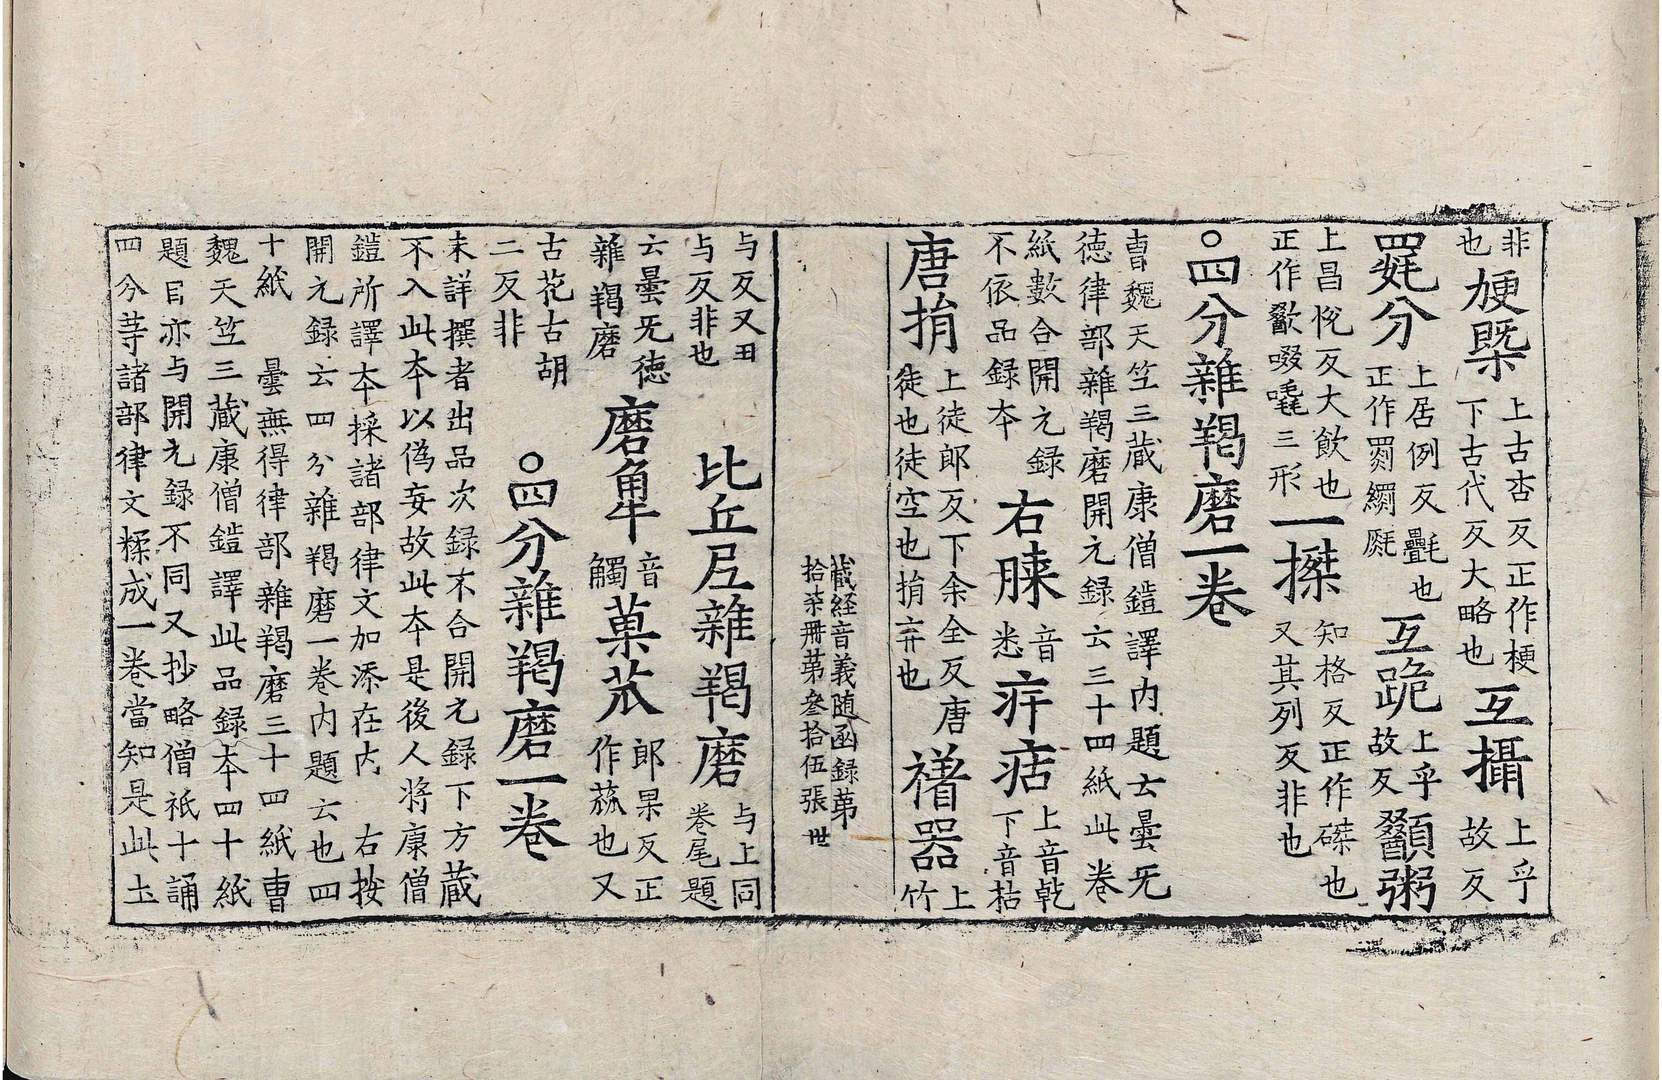 非也㛐槩上古杏反正作梗下古代反大略也互攝上乎故反
罽分上居例反㲲也正作罽𦇧𣯅互跪上乎故反歠粥
上昌悅反大飲也正作歠啜嚽三形一搩知格反正作磔也又其列反非也
○四分雜羯磨一卷
曺魏天竺三藏康僧鎧譯内題云曇无德律部雜羯磨開元録云三十四紙此卷
紙數合開元録不依品録夲右䐆音悉痒𤵸上音乾下音枯
唐捐上徒郎反下余全反唐徒也徒空也捐弃也褚器上竹
藏経音義随函録苐拾柒冊苐叄拾伍張 世
与反又丑与反非也比丘尼雜羯磨与上同卷尾題
云曇无德雜羯磨磨觕音觸菓蓏郎果反正作蓏也又
古花古胡二反非○四分雜羯磨一卷
未詳撰者出品次録不合開元録下方藏
不入此夲以僞妄故此夲是後人將康僧
鎧所譯夲採諸部律文加添在内 右按
開元録云四分雜羯磨一卷内題云也四
十紙 曇無得律部雜羯磨三十四紙曺
魏天竺三藏康僧鎧譯此品録夲四十紙
題目亦与開元録不同又抄略僧祇十誦
四分等諸部律文糅成一卷當知是此土